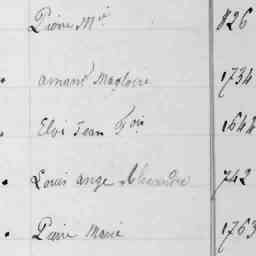 Pierre Mie 826
Amand Magloire 1734
Eloi Jean Fois 1644
Louis ange Alexandre 742
Pierre Marie 1763